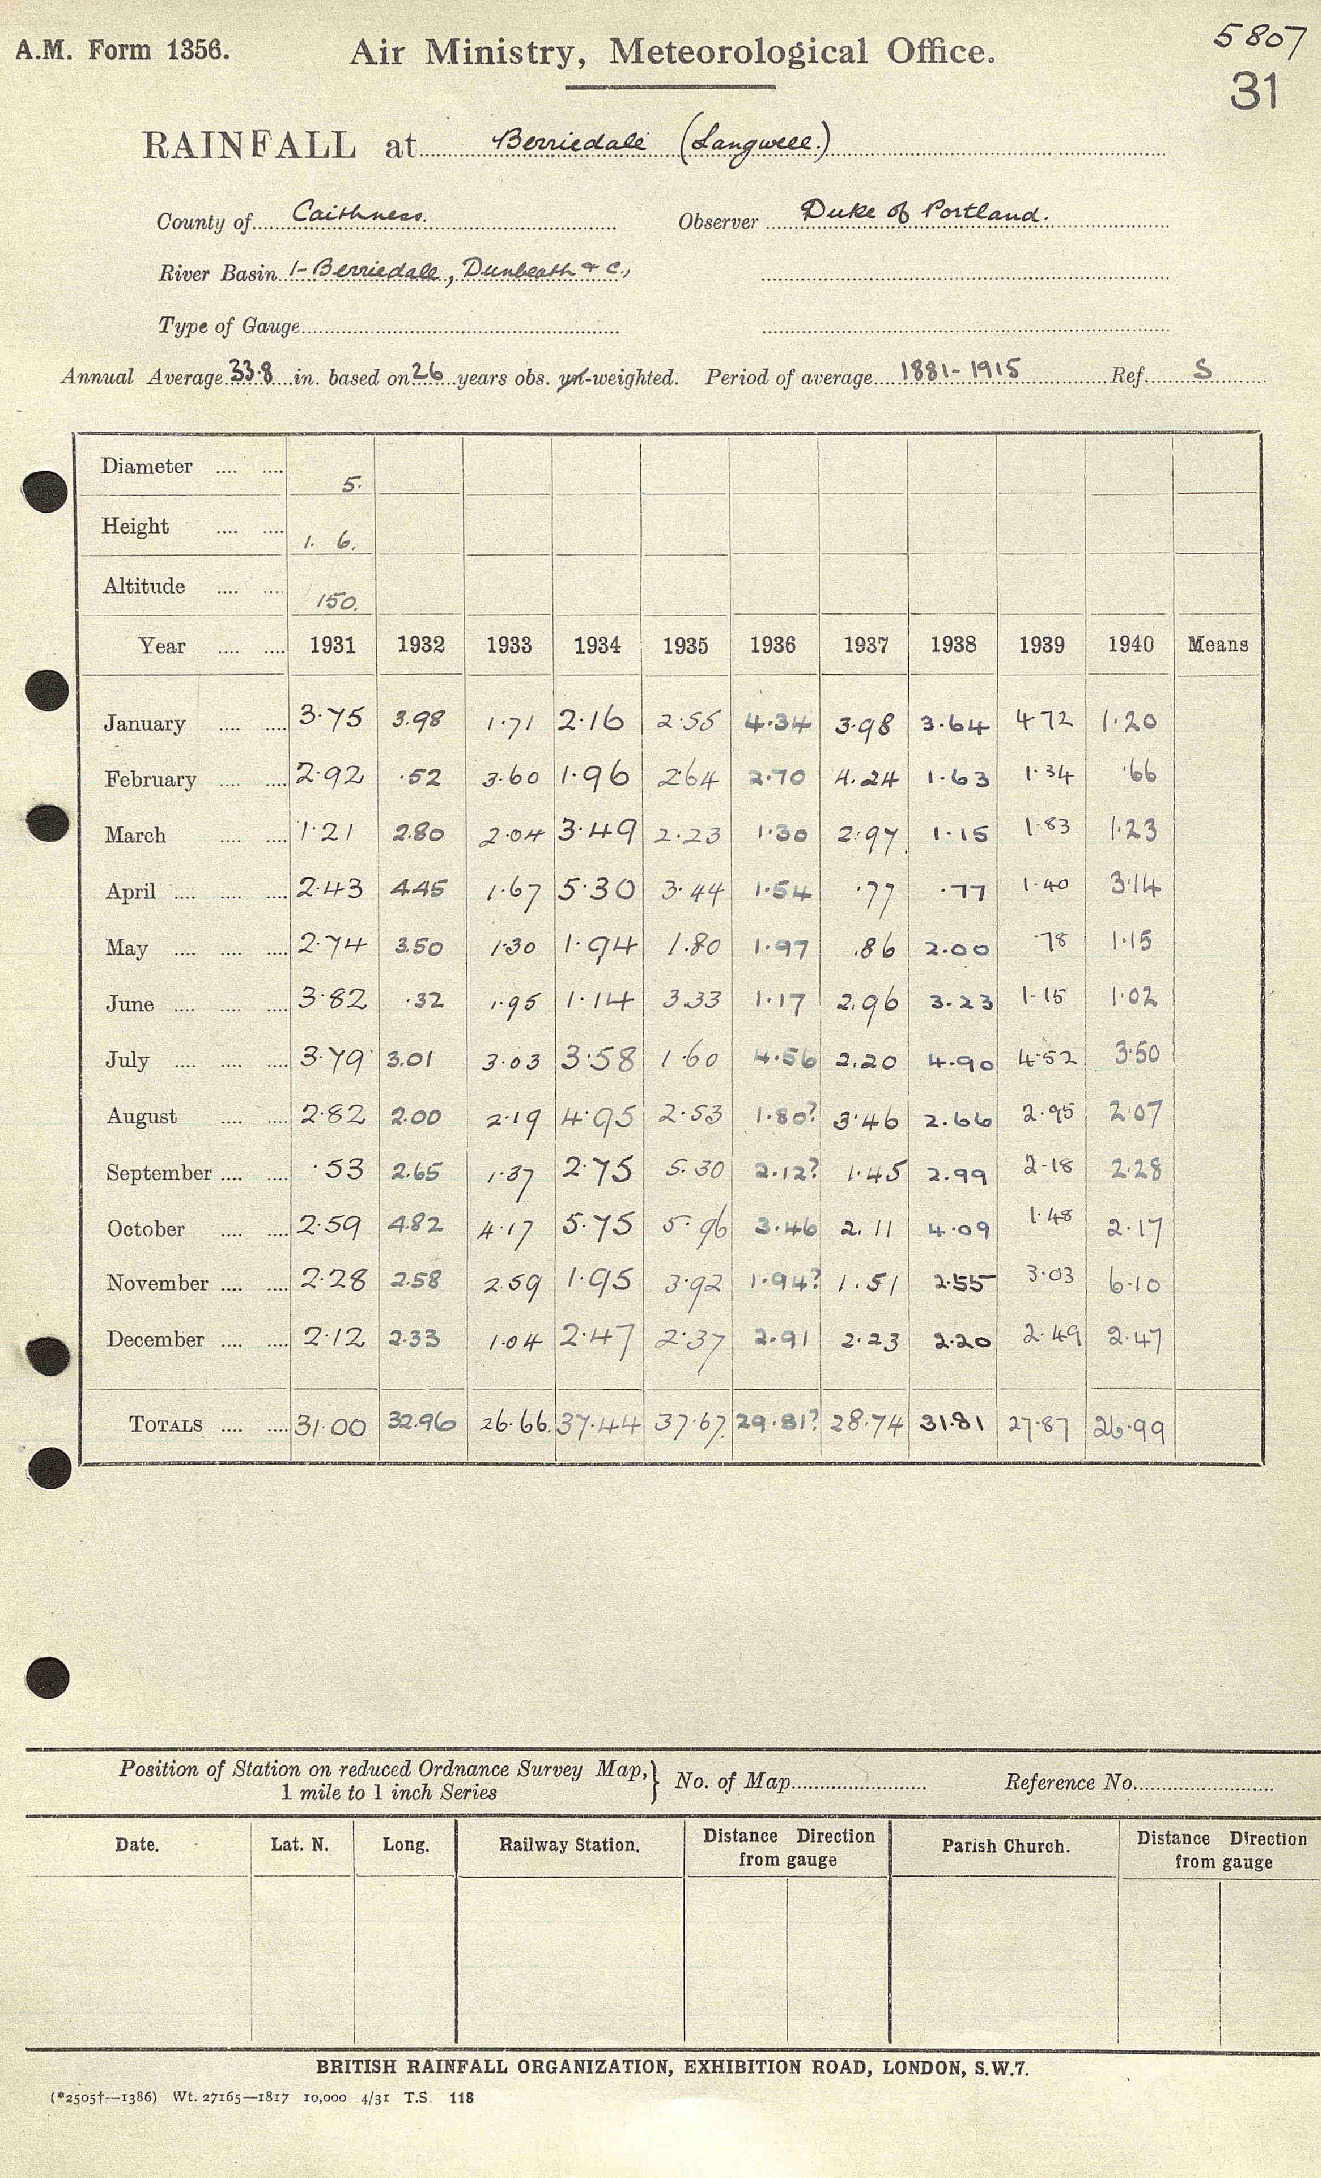 5807
A.M. Form 1356. Air Ministry, Meteorological Office.
31
RAINFALL at Berriedale (Langwell.)
County of Caithness. Observer Duke of Portland.
River Basin 1-Berriedale, Dunbeath & c,
Type of Gauge
Annual Average 33.8 in. based on 26 years obs. un-weighted. Period of average 1881-1915 Ref. S
Diameter .... .... 5.
Height .... .... 1. 6.
Altitude .... .... 150.
Year .... .... 1931 1932 1933 1934 1935 1936 1937 1938 1939 1940 Means
January .... .... 3.75 3.98 1.71 2.16 2.55 4.34 3.98 3.64 4.72 1.20
February .... .... 2.92 .52 3.60 1.96 2.64 2.70 4.24 1.63 1.34 .66
March .... .... 1.21 2.80 2.04 3.49 2.23 1.30 2.97 1.15 1.83 1.23
April .... .... .... 2.43 4.45 1.67 5.30 3.44 1.54 .77 .77 1.40 3.14
May .... .... .... 2.74 3.50 1.30 1.94 1.80 1.97 .86 2.00 .78 1.15
June .... .... .... 3.82 .32 1.95 1.14 3.33 1.17 2.96 3.23 1.15 1.02
July .... .... .... 3.79 3.01 3.03 3.58 1.60 4.56 2.20 4.90 4.52 3.50
August .... .... 2.82 2.00 2.19 4.95 2.53 1.80? 3.46 2.66 2.95 2.07
September .... .... .53 2.65 1.37 2.75 5.30 2.12? 1.45 2.99 2.18 2.28
October .... .... 2.59 4.82 4.17 5.75 5.96 3.46 2.11 4.09 1.48 2.17
November .... .... 2.28 2.58 2.59 1.95 3.92 1.94? 1.51 2.55 3.03 6.10
December .... .... 2.12 2.33 1.04 2.47 2.37 2.91 2.23 2.20 2.49 2.47
TOTALS .... .... 31.00 32.96 26.66 37.44 37.67 29.81? 28.74 31.81 27.87 26.99
Position of Station on reduced Ordnance Survey Map,} No. of Map Reference No.
1 mile to 1 inch Series
Date. Lat. N. Long. Railway Station. Distance Direction Parish Church. Distance Direction
from gauge from gauge
BRITISH RAINFALL ORGANIZATION, EXHIBITION ROAD, LONDON, S.W.7.
(*2505†—1386) Wt. 27165—1817 10,000 4/31 T.S. 118